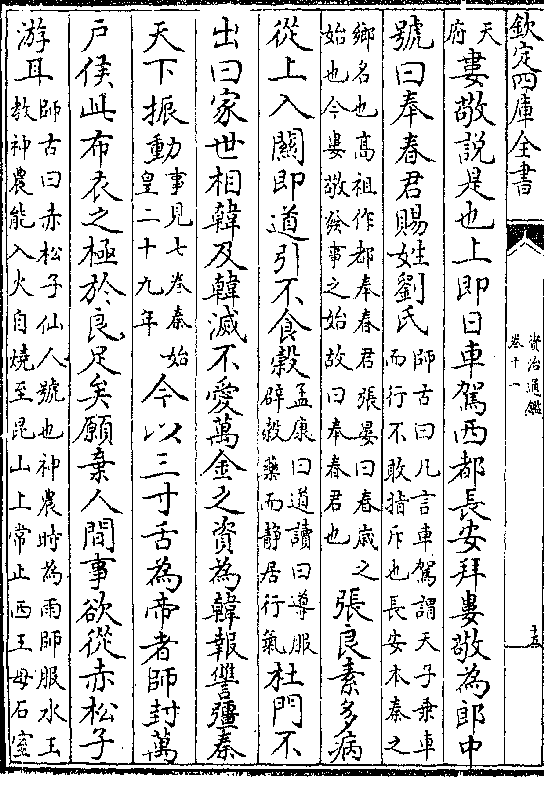 欽定四庫全書
資治通鑑
卷十一
天
府
婁敬說是也上即日車駕西都長安拜婁敬為郎中
號曰奉春君賜姓劉氏
師古曰凡言車駕謂天子乗車
而行不敢指斥也長安本秦之
鄉名也髙祖作都奉春君張晏曰春嵗之
始也今婁敬發事之始故曰奉春君也
張良素多病
從上入關即道引不食榖
孟康曰道讀曰導服
辟榖藥而静居行氣
杜門不
出曰家世相韓及韓滅不愛萬金之資為韓報讐彊秦
天下振動
事見七卷秦始
皇二十九年
今以三寸舌為帝者師封萬
戸侯此布衣之極於良足矣願棄人間事欲從赤松子
游耳
師古曰赤松子仙人號也神農時為雨師服水玉
教神農能入火自燒至昆山上常止西王母石室